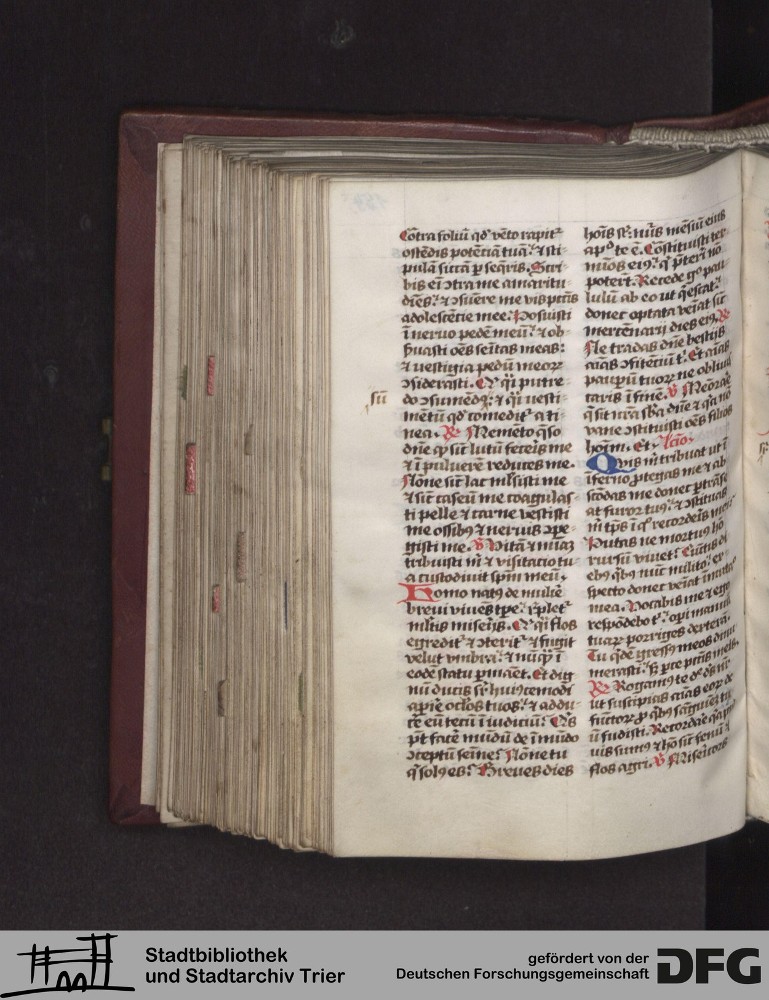 Cōtra foliū qd' vēto rapit᷑
ostēdis potēciā tuā: ⁊ sti-
pulā siccā ꝑseq̄ris. Scri-
bis ei ↄtra me amaritu-
dīēs: ⁊ ↄsūere me vis pctīs
adolescētie mee. Posuisti
ī neruo pedē meū: ⁊ ob-
ẜuasti oēs sēitas meas:
⁊ vestigia pedū meoꝝ
ↄsiderasti. Qͥ q̄i putre-
sū
do ↄsumēdꝰ: ⁊ q̄i vesti-
mētū qd' comedit᷑ a ti-
nea. ℟ Memēto q̄so
dn̄e qꝫ sic̄ lutū feceris me
⁊ ī puluerē reduces me.
Nōne sic̄ lac mlsisti me
⁊ sic̄ caseū me coagulas-
ti pelle ⁊ carne vestisti
me ossibꝰ ⁊ neruis ↄpe-
gisti me. ℣ Vitā ⁊ mīaꝫ
tribuisti m̄ ⁊ visitacio tu-
a custodiuit spm̄ meū.
Homo natꝰ de muliē
breui viuēs tꝑe: rplet᷑
mltis miserijs. Qͥ q̄i flos
egredit᷑ ⁊ ↄterit᷑ ⁊ fugit
velut vmbra: ⁊ nūqͣ ī
eodē statu ꝑmāet. Et dig-
nū ducis sr̄ huiꝰcemodi
aꝑire oclōs tuos: ⁊ addu-
ce eū tecū ī iudiciū? Qͥs
pt̄ facē mūdū de īmūdo
ↄceptū seīne? Nōne tu
q̄ solꝰ es? Breues dies
hoīs st̄: nūs mēsiū eiꝰ
apͩ te ē. Constituisti ter-
mīos eiꝰ: q̄ p̄teri nō
poter̄t. Recede gͦ pau-
lulū ab eo ut q̄escat:
donec optata veīat sic̄
mercēnarij dies eiꝰ. ℟
Ne tradas dn̄e bestijs
aīas ↄfitēciū t'. Et aīas
paupū tuoꝝ ne obliuis-
caris ī finē. ℣ Memorare
q̄ sit nr̄a sba dn̄e ⁊ qͣ nō
vane ↄstituisti oēs filios
hoīm. Et. Lc̄io.
Quis m̄ tribuat ut ī
īferno ꝓtegas me ⁊ ab-
scōdas me donec ꝑtrāse-
at furor tuꝰ: ⁊ ↄstituas
m̄ tp̄s ī qͦ recorderis mei?
Putas ne mortuꝰ hō
rursū viuet? Cūctis di-
ebꝰ qͥbꝰ nūc milito: ex-
specto donec veīat īmutatͦ
mea. Vocabis me ⁊ ego
respōdebo t': oꝑi manuū
tuaꝝ porriges dexterā.
Tu qͥdē gressꝰ meos dinu-
merasti: sꝫ ꝑce pctīs meis.
℟ Rogamꝰ te dn̄e ds̄ nr̄
ut suscipias aīas eoꝝ de-
fūctoꝝ ꝓ qͥbꝰ sāguinē tu-
ū fudisti. Recordare qͣ pul-
uis sumꝰ ⁊ hō sic̄ fenū ⁊
flos agri. ℣ Misericors
Stadtbibliothek
und Stadtarchiv Trier
gefördert von der
Deutschen Forschungsgemeinschaft
DFG